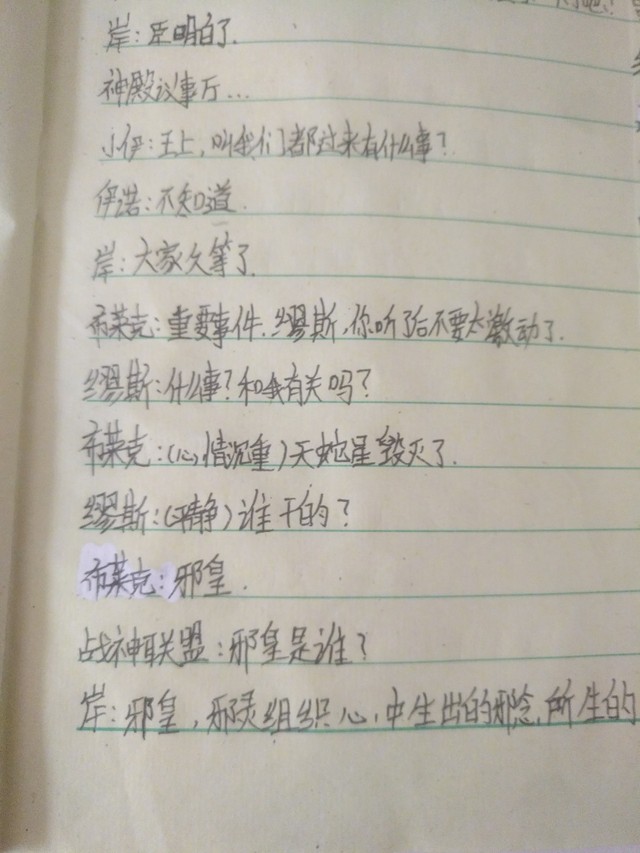 岸：臣明白了.
神殿议事厅…
小伊：王上,叫我们都过来有什么事?
伊诺：不知道.
岸：大家久等了.
布莱克：重要事件.缪斯,你听了后不要太激动了.
缪斯：什么事?和我有关吗?
布莱克：(心情沉重)天蛇星毁灭了.
缪斯：(平静)谁干的?
布莱克：邪皇.
战神联盟：邪皇是谁?
岸：邪皇,邪灵组织心中生出的邪念,所生的